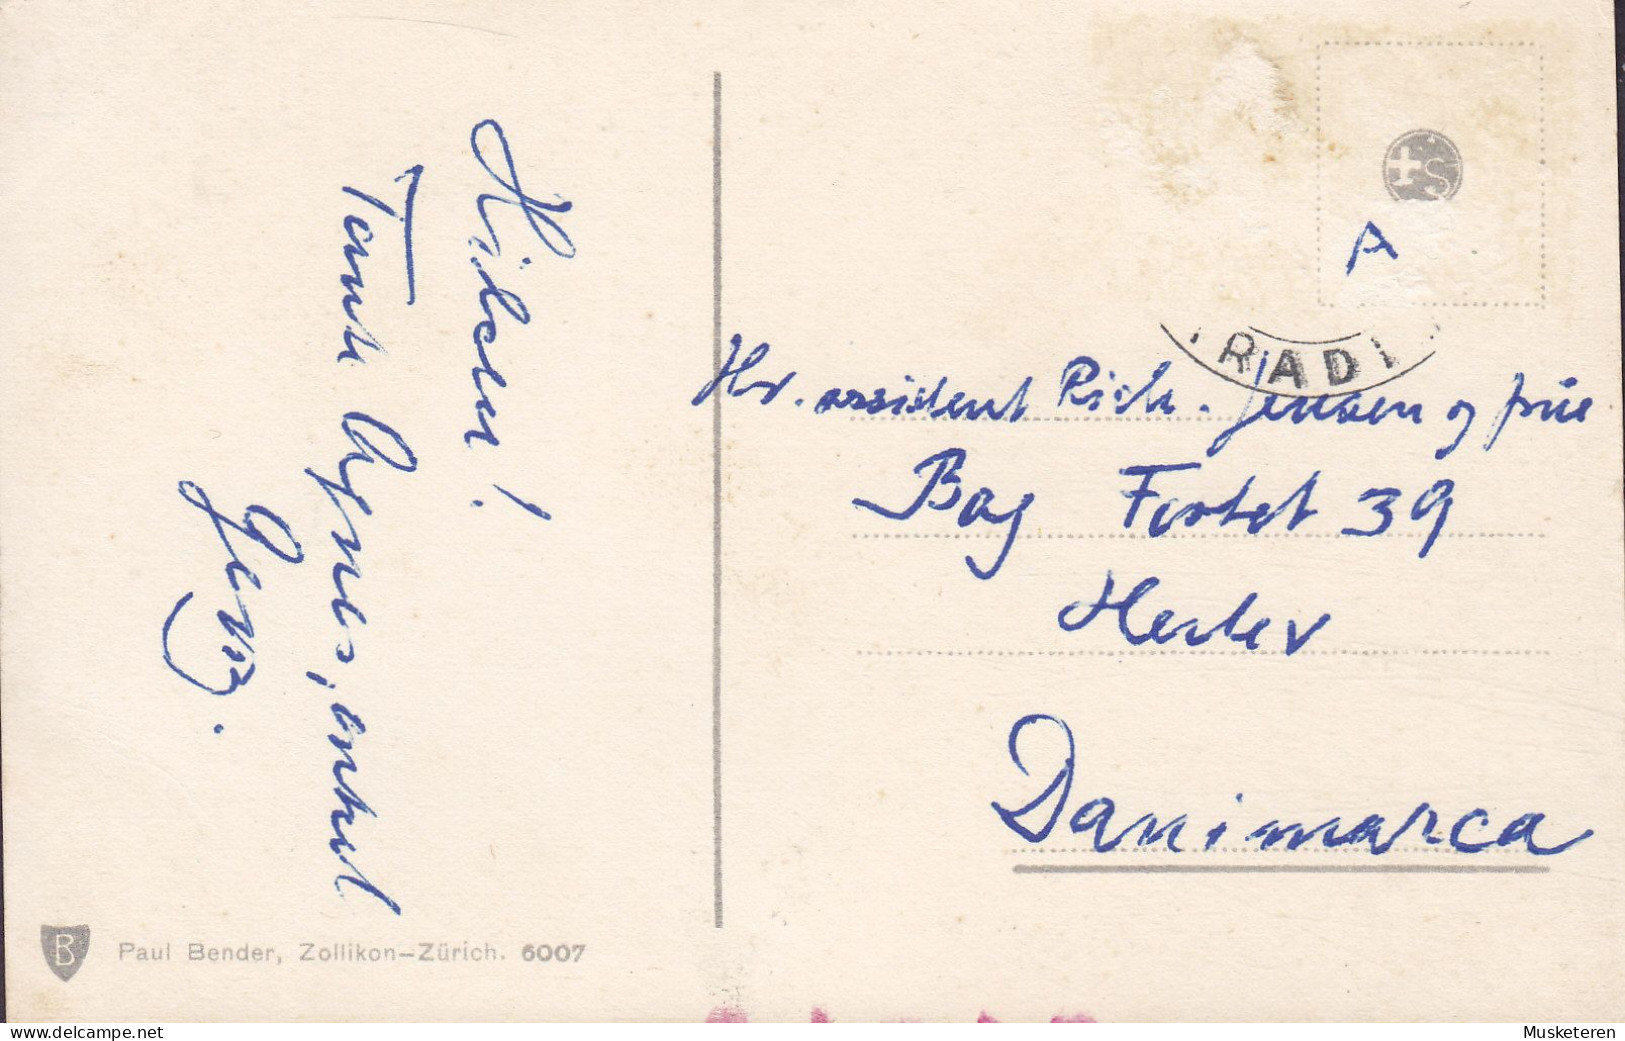 Hilsen!
Tante Agnes, onkel
Jens.
A
RADI
Hr. assistent Rich. Jensen og frue
Bag Fortet 39
Herlev
Danimarca
B
Paul Bender, Zollikon–Zürich. 6007
www.delcampe.net
Musketeren